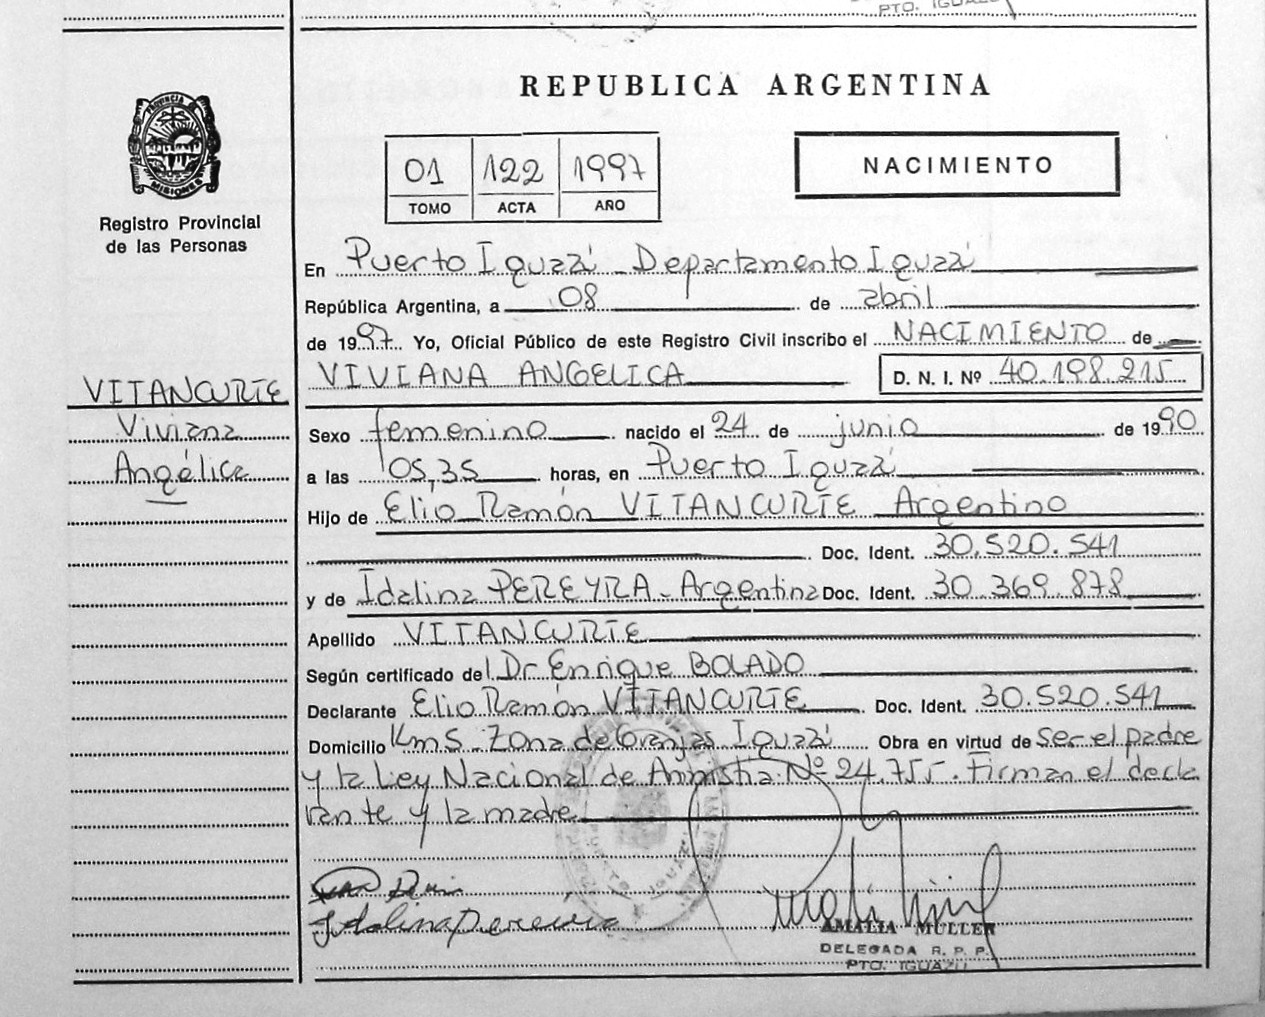 PTO. IGUAZU
REPUBLICA ARGENTINA
PROVINCIA DE
MISIONES
Registro Provincial
de las Personas
01 122 1997
TOMO ACTA AÑO
NACIMIENTO
En Puerto Iguazú - Departamento Iguazú
República Argentina, a 08 de abril
de 1997 Yo, Oficial Público de este Registro Civil inscribo el NACIMIENTO de
VIVIANA ANGELICA D. N. I. Nº 40.198.215
VITANCURTE
Viviana
Angélica
Sexo femenino nacido el 24 de junio de 1990
a las 05,35 horas, en Puerto Iguazú
Hijo de Elio Ramón VITANCURTE Argentino
Doc. Ident. 30.520.541
y de Idalina PEREYRA - Argentina Doc. Ident. 30.369.878
Apellido VITANCURTE
Según certificado del Dr Enrique BOLADO
Declarante Elio Ramón VITANCURTE Doc. Ident. 30.520.541
Domicilio Km5 - Zona de Granjas Iguazú Obra en virtud de ser el padre
y la Ley Nacional de Amnistia Nº 24.755. Firman el decla
rante y la madre
Idalina Pereira
AMALIA MULLER
DELEGADA R. P. P.
PTO. IGUAZU